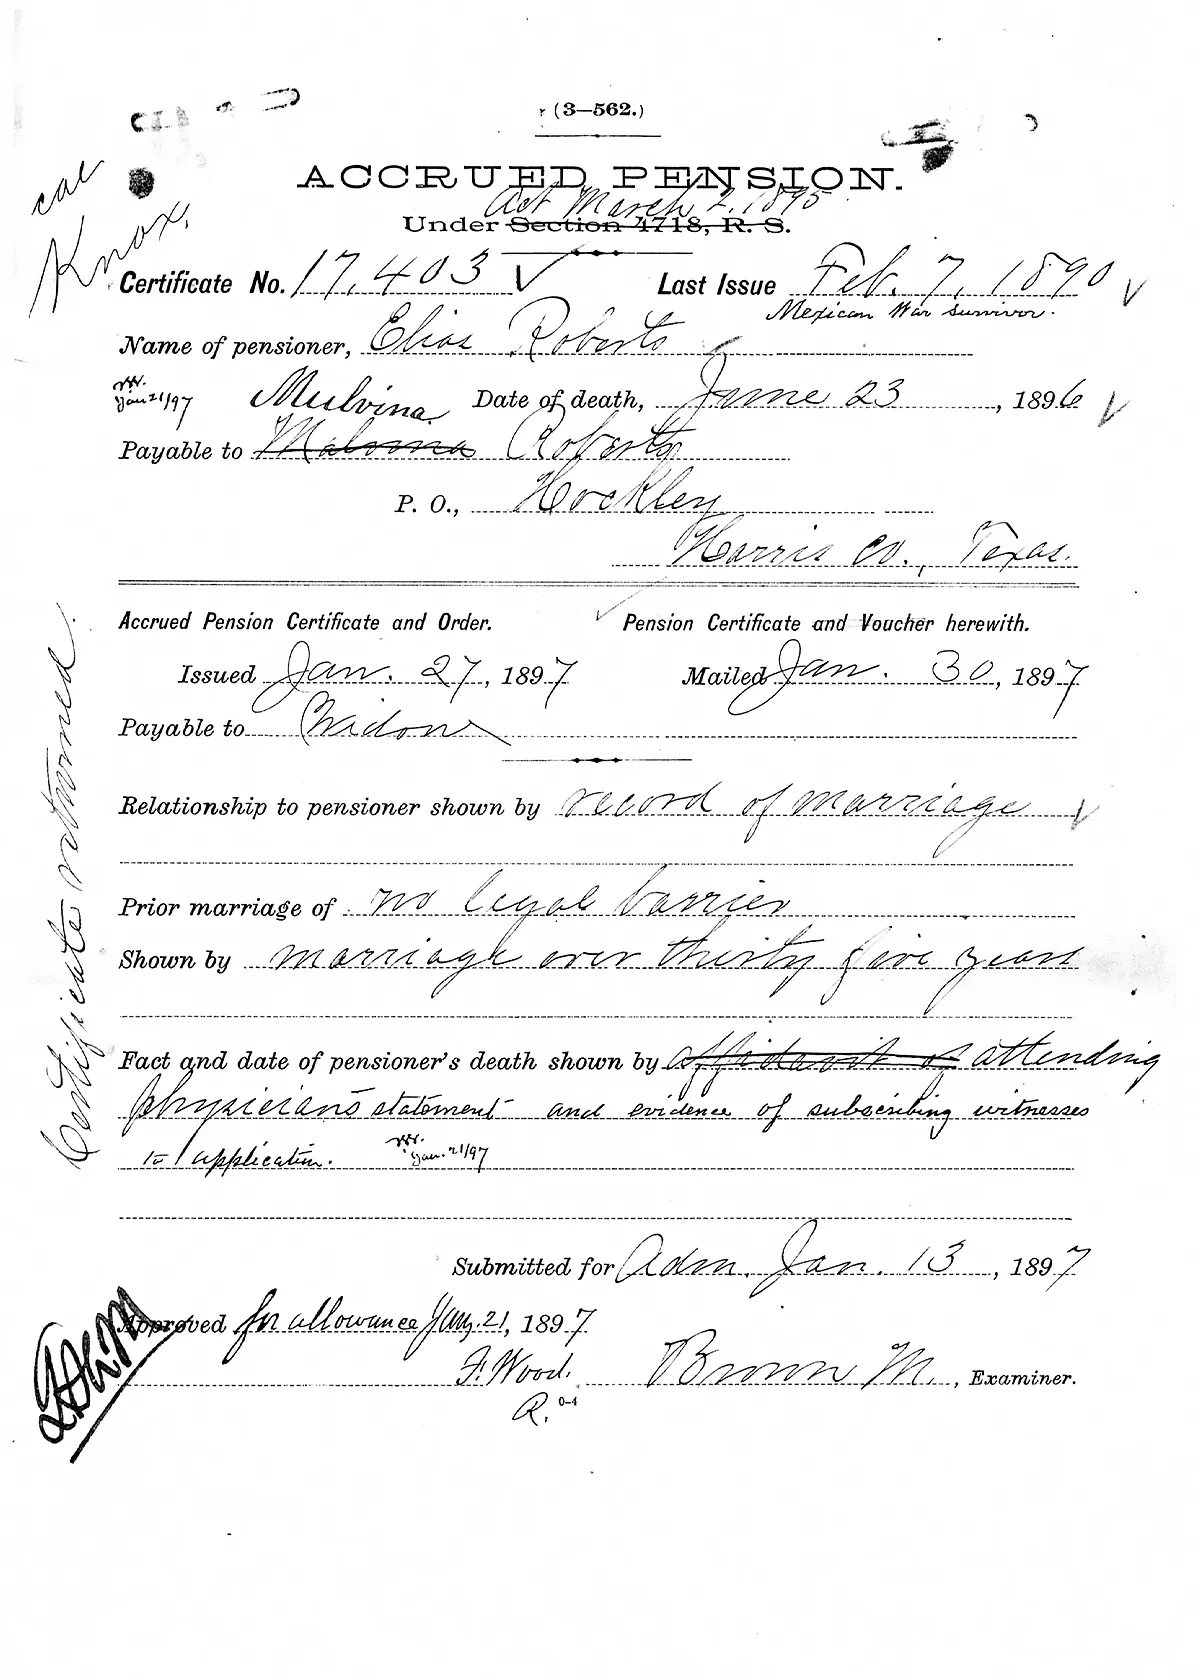 (3—562.)
ACCRUED PENSION.
Act March 2, 1895
Under Section 4718, R. S.
Knox,
Certificate No. 17,403 Last Issue Feb. 7, 1890
Mexican War survivor.
Name of pensioner, Elias Roberts
Jan 21/97 Mulvina Date of death, June 23, 1896
Payable to Malvina Roberts
P. O., Hockley
Harris Co., Texas.
Accrued Pension Certificate and Order. Pension Certificate and Voucher herewith.
Issued Jan. 27, 1897 Mailed Jan. 30, 1897
Payable to Widow
Relationship to pensioner shown by record of marriage
Prior marriage of no legal barrier
Shown by marriage over thirty five years
Fact and date of pensioner's death shown by affidavit of attending
physician's statement and evidence of subscribing witnesses
to application. Jan. 21/97
Certificate returned.
Submitted for Adm. Jan. 13, 1897
Approved for allowance Jany. 21, 1897
F. Wood. Brown M., Examiner.
R. 0-4